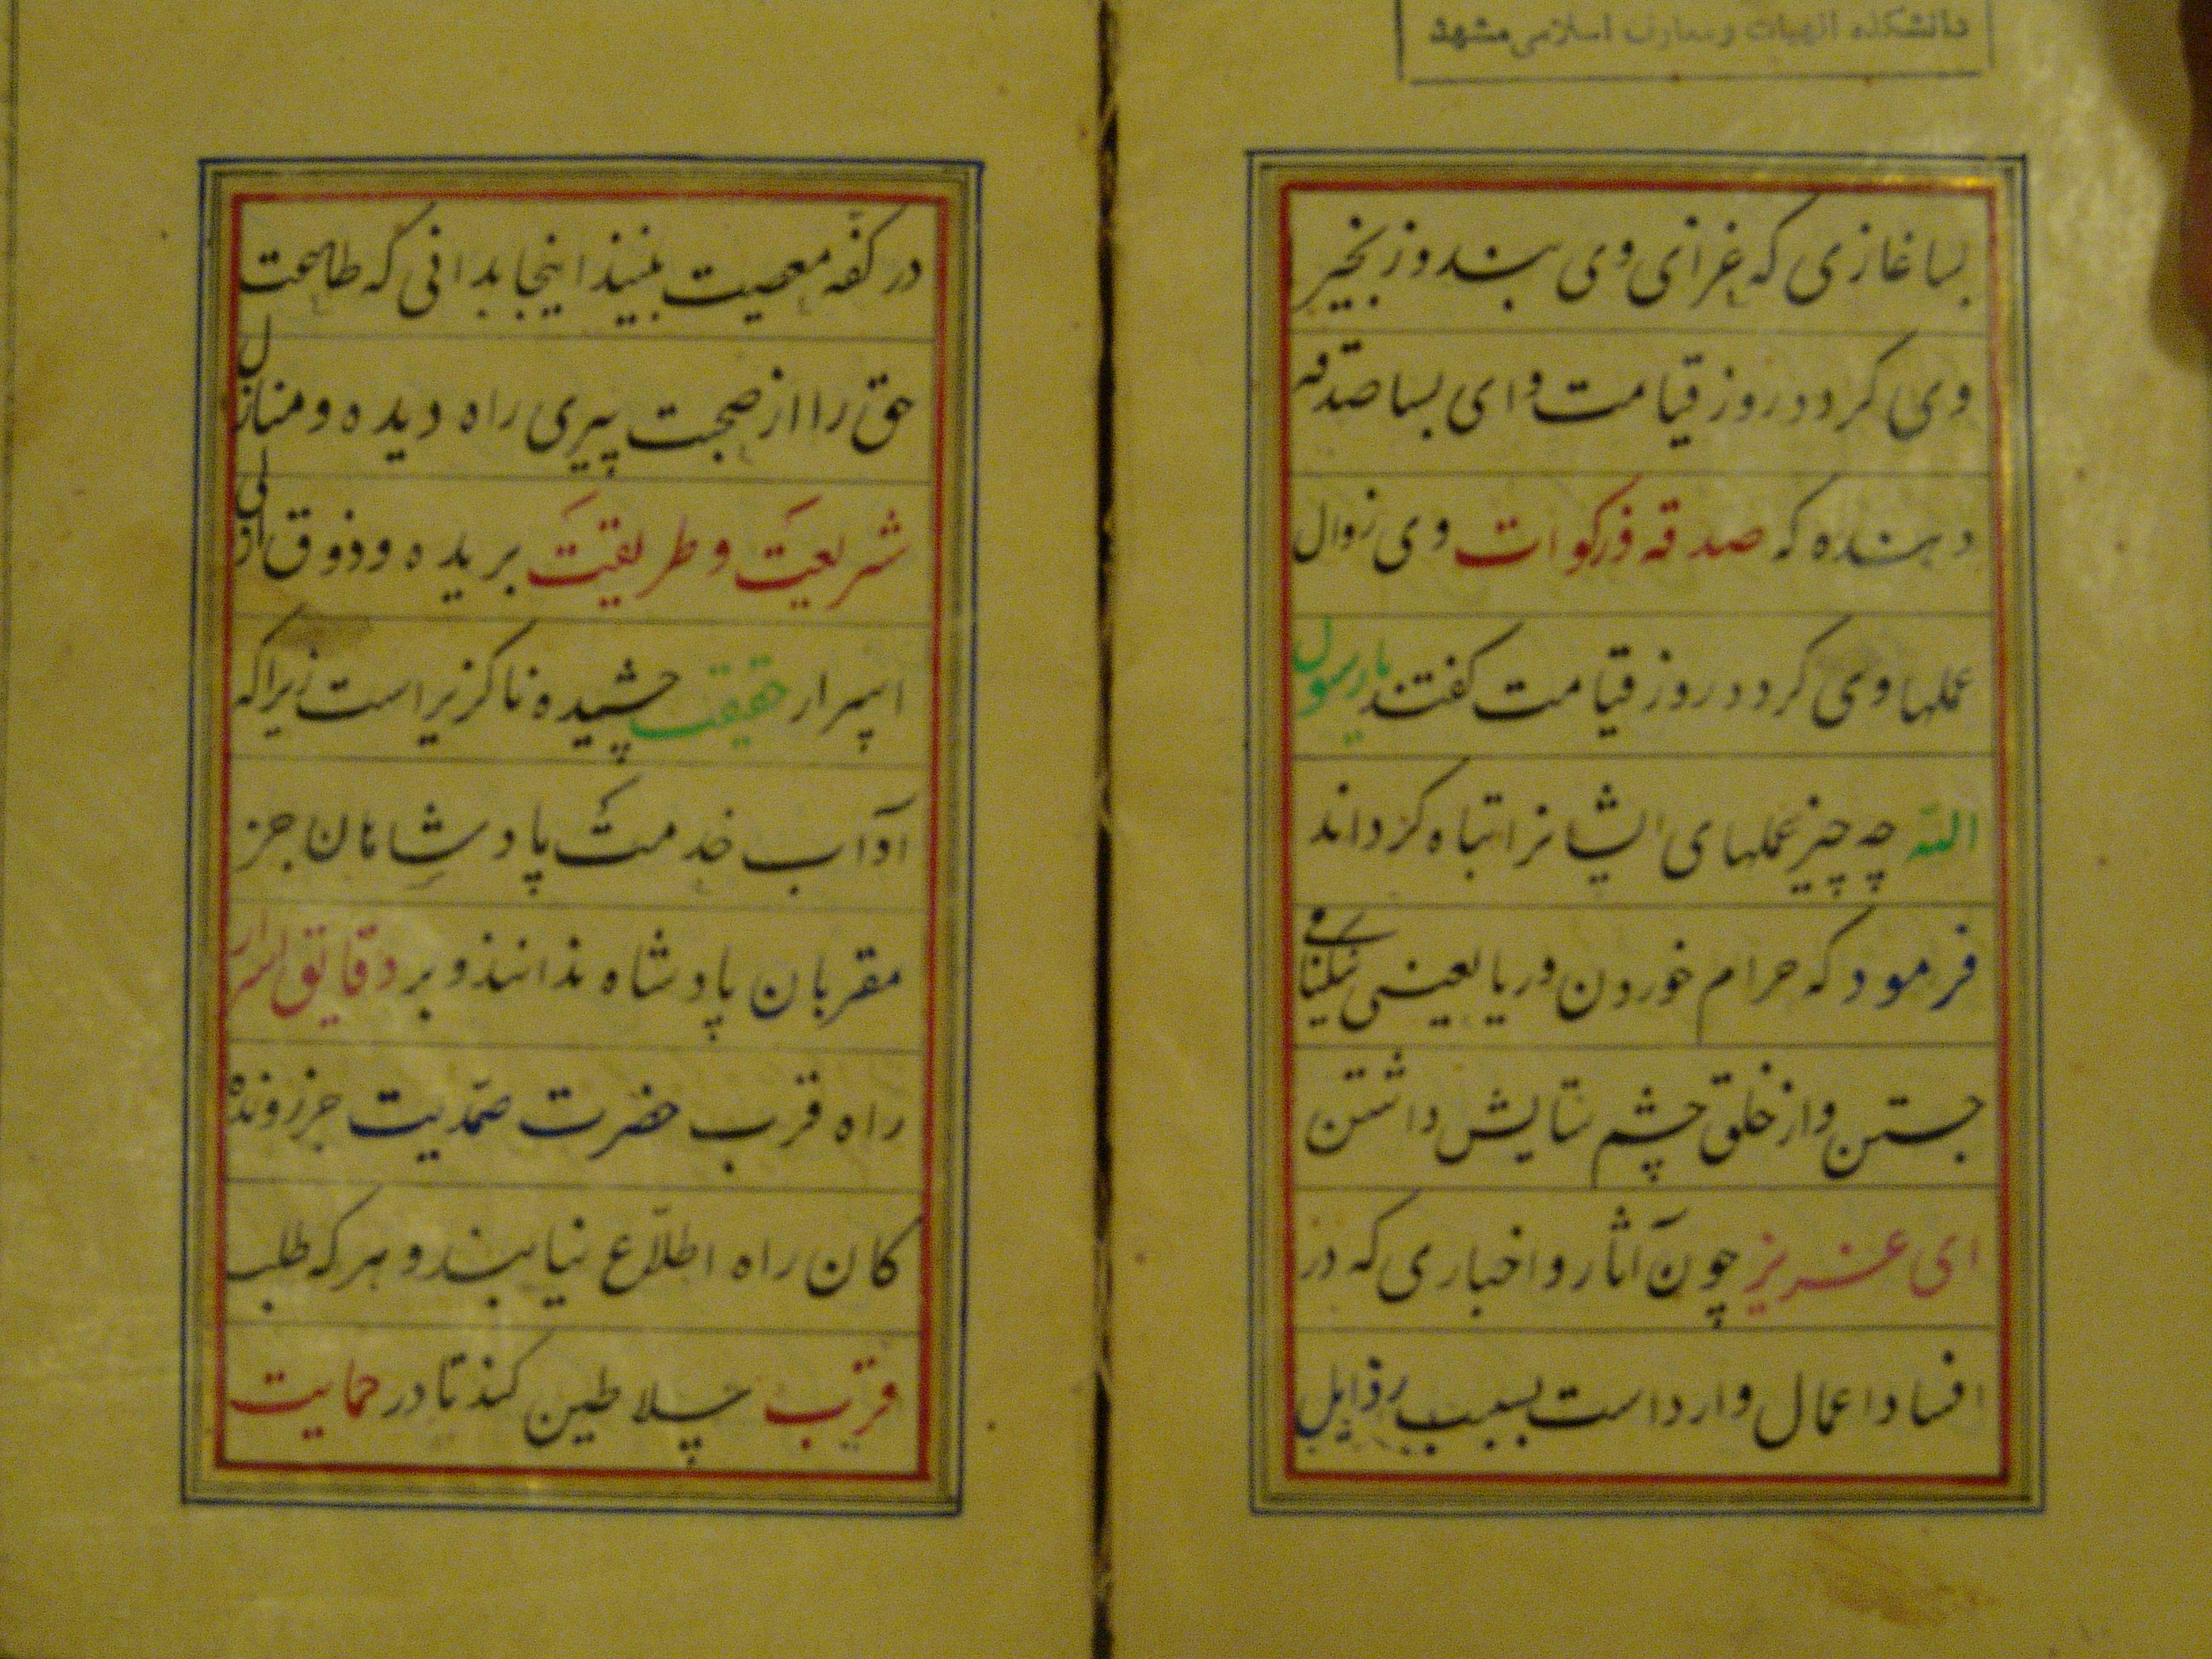 دانشکده الهیات و معارف اسلامی مشهد
بسا غازی که غزای وی بند و زنجیر
وی کردد روز قیامت وای بسا صدقه
دهنده که صدقه و زکوات وی زوال
عملهاوی کردد روز قیامت کفتند یا رسول
الله چه چیز عملهای ایشانرا تباه کرداند
فرمود که حرام خوردن و ریا یعنی نیکنامی
جستن و از خلق چشم ستایش داشتن
ای عزیز چون آثار و اخباری که در
افساد اعمال وارد است بسبب رذایل
در کفه معصیت بینند اینجا بدانی که طاعت
حق را از صحبت پیری راه دیده و منازل
شریعت و طریقت بریده و ذوق
اسرار حقیقت چشیده ناکزیر است زیراکه
آداب خدمت پادشاهان جز
مقربان پادشاه ندانند و بر دقایق اسرار
راه قرب حضرت صمدیت جز روندۀ
کان راه اطلاع نیابند و هر که طلب
قرب سلاطین کند تا در حمایت